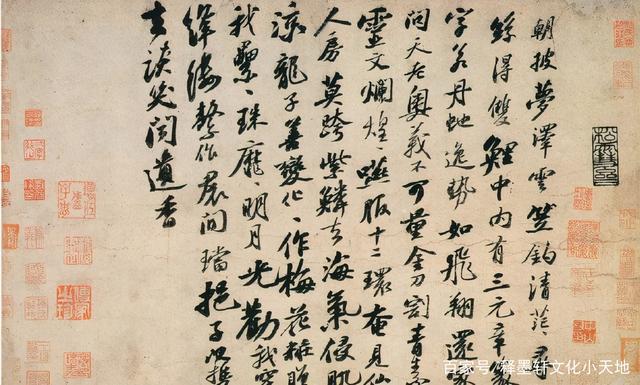 朝披夢澤雲笠釣清茫〻尋
絲得雙鯉中内有三元章篆
字若丹虵逸勢如飛翔還家
問天老奥義不可量金刀割青素
靈文爛煌〻嚥服十二環奄見仙
人房莫跨紫鱗去海氣侵肌
涼龍子善變化〻作梅花糚贈
我纍〻珠靡〻明月光勸我穿
絳縷繫作裙間璫挹子以攜
去談笑聞遺香
百家号/释墨轩文化小天地